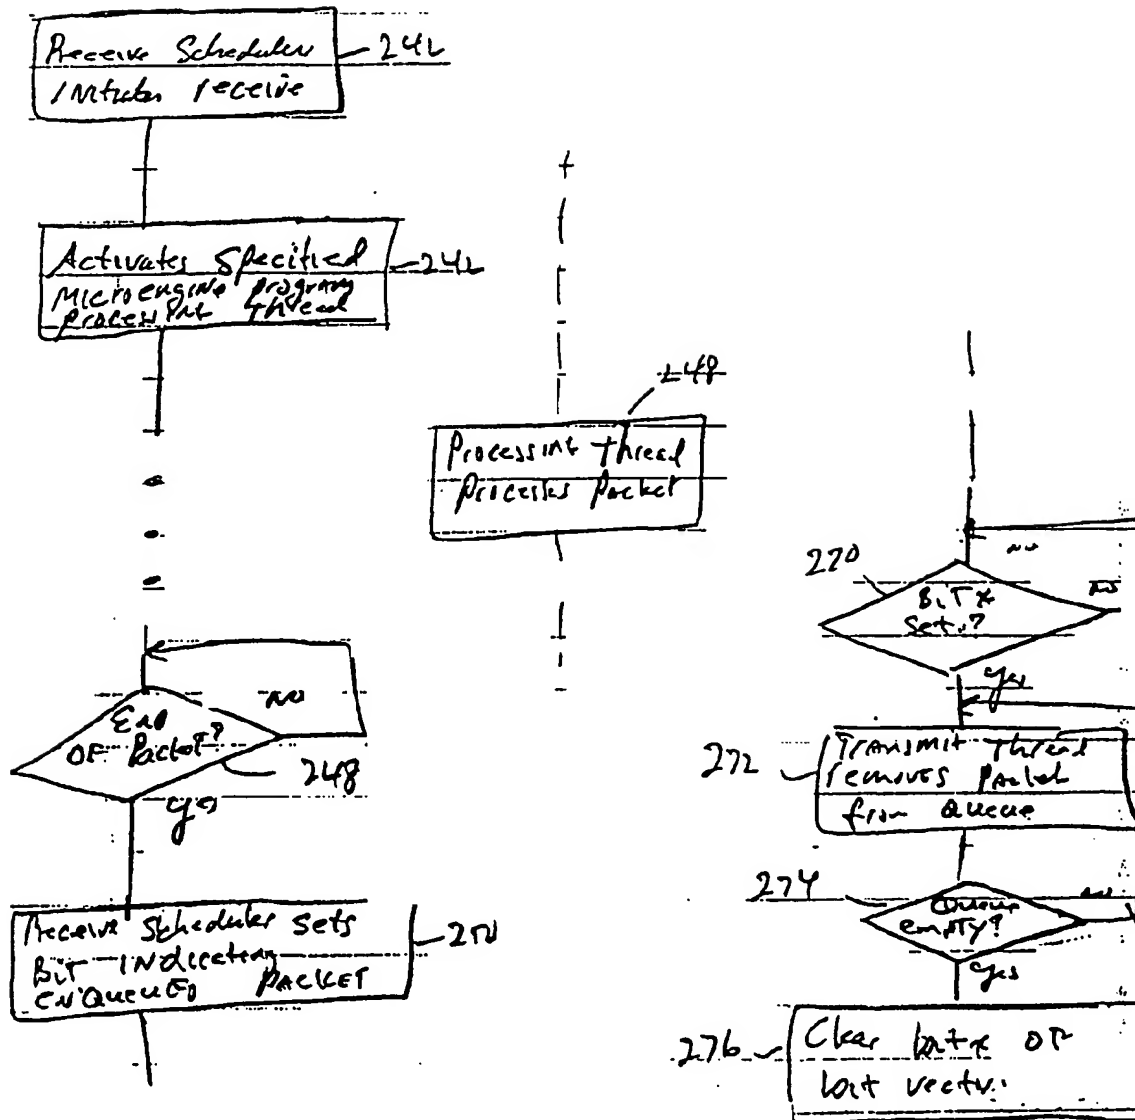 Receive Scheduler
Initiates receive
242
Activates Specified
Microengine program
processing thread
242
248
Processing thread
processes packet
End
OF Packet?
NO
248
yes
Receive Scheduler sets
BiT INdicating
ENQUEUED PACKET
250
270
NO
BiT x
Set?
NO
yes
272
TRANSMIT thread
removes Packet
from Queue
274
Queue
empty?
NO
yes
276
Clear bit x OF
bit vector